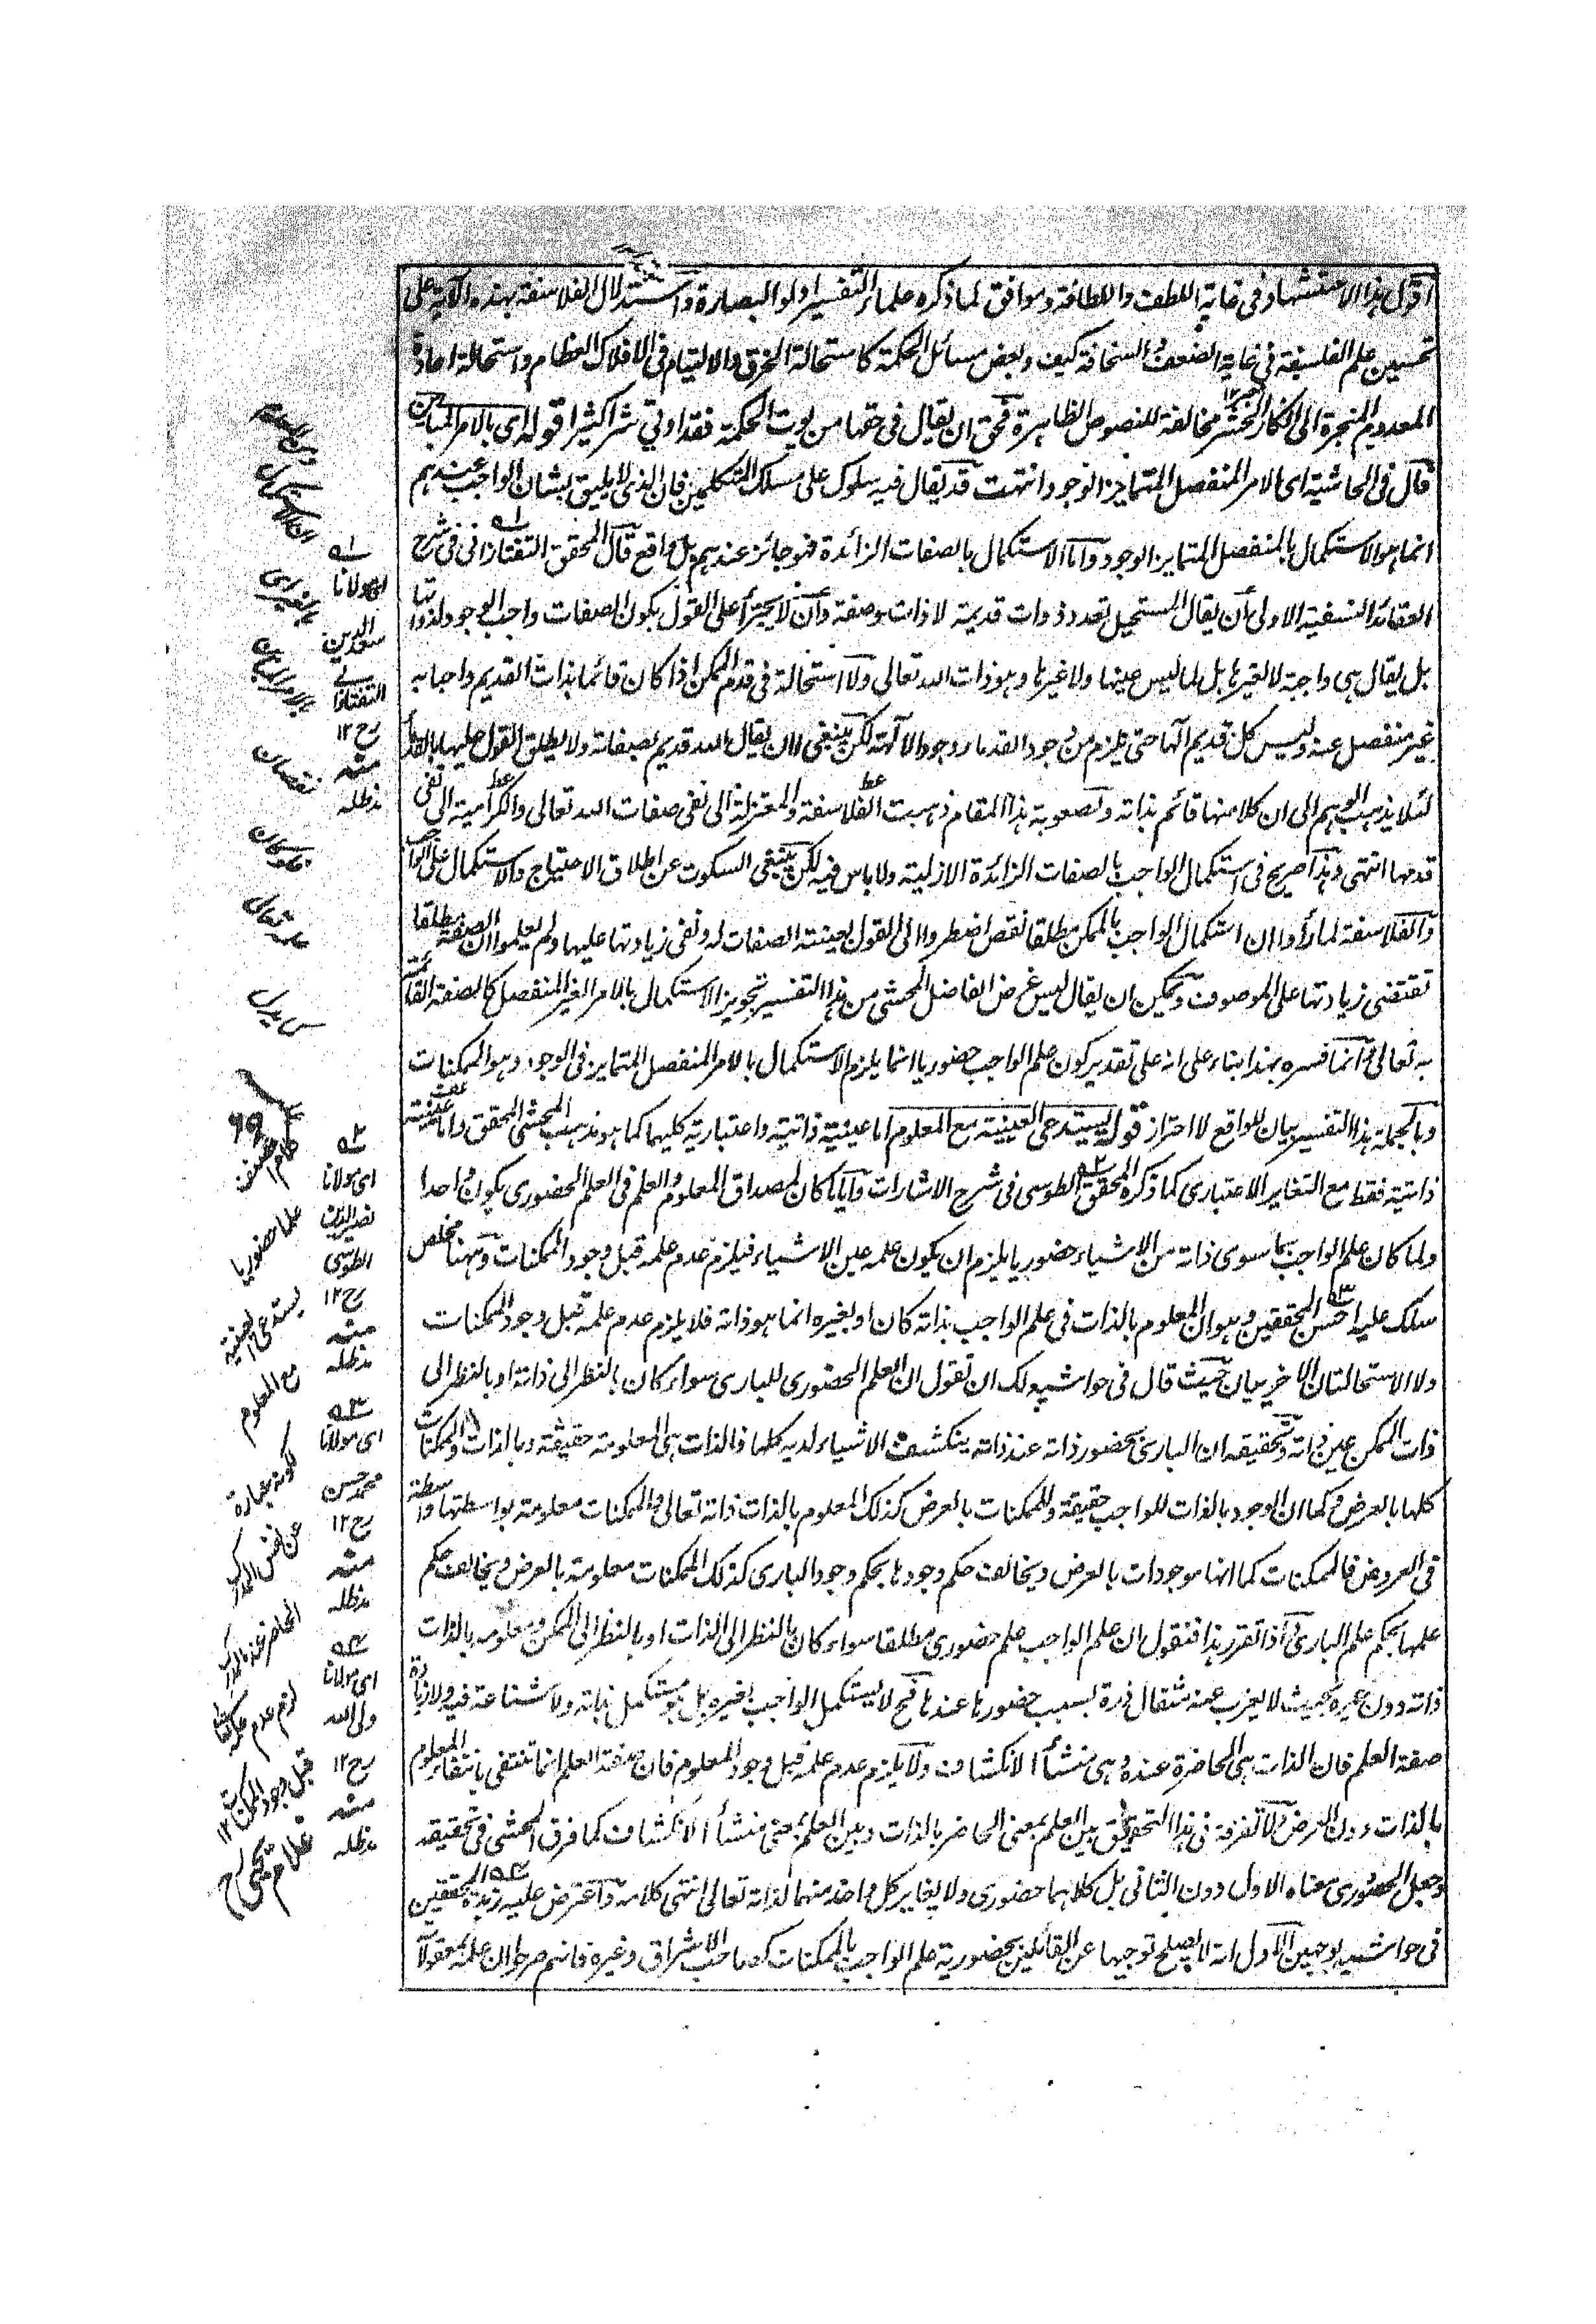 اقول هذا الاستشهاد فى غاية اللطف واللطافة وموافق لما ذكره علماء التفسير اولو البصارة واستدلال الفلاسفة بهذه الآية على
تحسين علم الفلسفة فى غاية الضعف والسخافة كيف وبعض مسائل الحكمة كاستحالة الخرق والالتيام فى الافلاك العظام واستحالة اعادة
المعدوم المنجرة الى انكار الحشر مخالفة للنصوص الظاهرة فحق ان يقال فى حقها من يوت الحكمة فقد اوتي شرا كثيرا قوله اى بالامر المباين
قال فى الحاشية اى الامر المنفصل المتمايز الوجود انتهت قد يقال فيه سلوك على مسلك المتكلمين فان الذى لا يليق بشان الواجب عندهم
انما هو الاستكمال بالمنفصل المتمايز الوجود واما الاستكمال بالصفات الزائدة فهو جائز عندهم بل واقع قال المحقق التفتازانى فى شرح
العقائد النسفية الاولى أن يقال المستحيل تعدد ذوات قديمة لا ذات وصفة وأن لا يجترأ على القول بكون الصفات واجب الوجود لذواتها
بل يقال هى واجبة لا لغيرها بل لما ليس عينها ولا غيرها وهو ذات الله تعالى ولا استحالة فى قدم الممكن اذا كان قائما بذات القديم واجبا به
غير منفصل عنه وليس كل قديم آلها حتى يلزم من وجود القدماء وجود الالهة لكن ينبغى لان يقال الله قديم بصفاته ولا يطلق القول عليها بالقدماء
لئلا يذهب الوهم الى ان كلا منها قائم بذاته ولصعوبة هذا المقام ذهبت الفلاسفة والمعتزلة الى نفى صفات الله تعالى والكرامية الى نفى
قدمها انتهى وهذا صريح فى استكمال الواجب بالصفات الزائدة الازلية ولا باس فيه لكن ينبغى السكوت عن اطلاق الاحتياج والاستكمال على الواجب
والفلاسفة لما رأوا ان استكمال الواجب بالممكن مطلقا نقص اضطروا الى القول بعينية الصفات له ونفى زيادتها عليها ولم يعلموا ان الصفة مطلقا
تقتضى زيادتها على الموصوف ويمكن ان يقال ليس غرض الفاضل المحشى من هذا التفسير تجويز الاستكمال بالامر الغير المنفصل كالصفة القائمة
به تعالى وانما فسره بهذا بناء على انه على تقدير كون علم الواجب حضوريا انما يلزم الاستكمال بالامر المنفصل المتمايز فى الوجود وهو الممكنات
وبالجملة هذا التفسير بيان للواقع لا احتراز قوله يستدعى العينية مع المعلوم اما عينية ذاتية واعتبارية كليهما كما هو مذهب المحشى المحقق واما عينية
ذاتية فقط مع التغاير الاعتبارى كما ذكره المحقق الطوسى فى شرح الاشارات وايا ما كان لمصداق المعلوم والعلم فى العلم الحضورى يكون واحدا
ولما كان علم الواجب بما سوى ذاته من الاشياء حضوريا يلزم ان يكون علمه عين الاشياء فيلزم عدم علمه قبل وجود الممكنات وههنا مخلص
سلك عليه احسن المحققين وهو ان المعلوم بالذات فى علم الواجب بذاته كان او بغيره انما هو ذاته فلا يلزم عدم علمه قبل وجود الممكنات
ولا الاستحالتان الاخريان حيث قال فى حواشيه ولك ان تقول ان العلم الحضورى للبارى سواء كان بالنظر الى ذاته او بالنظر الى
ذات الممكن عين ذاته وتحقيقه ان البارى بحضور ذاته عند ذاته ينكشف الاشياء لديه كلها فالذات هى المعلومة حقيقة وبالذات والممكنات
كلها بالعرض وكما ان الوجود بالذات للواجب حقيقة وللممكنات بالعرض كذلك المعلوم بالذات ذاته تعالى والممكنات معلومة بواسطتها واسطة
فى العروض فالممكنات كما انها موجودات بالعرض ويخالف حكم وجودها بحكم وجود البارى كذلك الممكنات معلومة بالعرض ويخالف حكم
علمها بحكم علم البارى اذا تقرر هذا فنقول ان علم الواجب علم حضورى مطلقا سواء كان بالنظر الى الذات او بالنظر الى الممكن ومعلومه بالذات
ذاته دون غيره بحيث لا يعزب عنه مثقال ذرة بسبب حضورها عندها فح لا يستكمل الواجب بغيره بل هو مستكمل بذاته ولا شناعة فيه ولا زيادة
صفة العلم فان الذات هى الحاضرة عنده وهى منشأ الانكشاف ولا يلزم عدم علمه قبل وجود المعلوم فان صفة العلم انما تنتفى بانتفاء المعلوم
بالذات دون العرض ولا تفرقة فى هذا التحقيق بين العلم بمعنى الحاضر بالذات وبين العلم بمعنى منشأ الانكشاف كما فرق المحشى فى تحقيقه
وجعل الحضورى معناه الاول دون الثانى بل كلاهما حضورى ولا يغاير كل واحد منهما لذاته تعالى انتهى كلامه واعترض عليه زبدة المحققين
فى حواشيه بوجهين الاول انه لا يصلح توجيها عن القائلين بحضورية علم الواجب بالممكنات كصاحب الاشراق وغيره فانهم صرحوا ان علمه بمعقولاته
اى مولانا
سعد الدين
التفتازانى
رح ١٢
منه
مد ظله
اى مولانا
نصير الدين
الطوسى
رح ١٢
منه
مد ظله
اى مولانا
محمد حسن
رح ١٢
منه
مد ظله
اى مولانا
ولى الله
رح ١٢
منه
مد ظله
نقصان
علما حضوريا
يستدعى العينية
مع المعلوم
لكونه عبارة
عن نفس المدرك
الحاضر عند المدرك
لزم عدم علمه تعالى
قبل وجود الممكنات ١٢
غلام يحيى رح